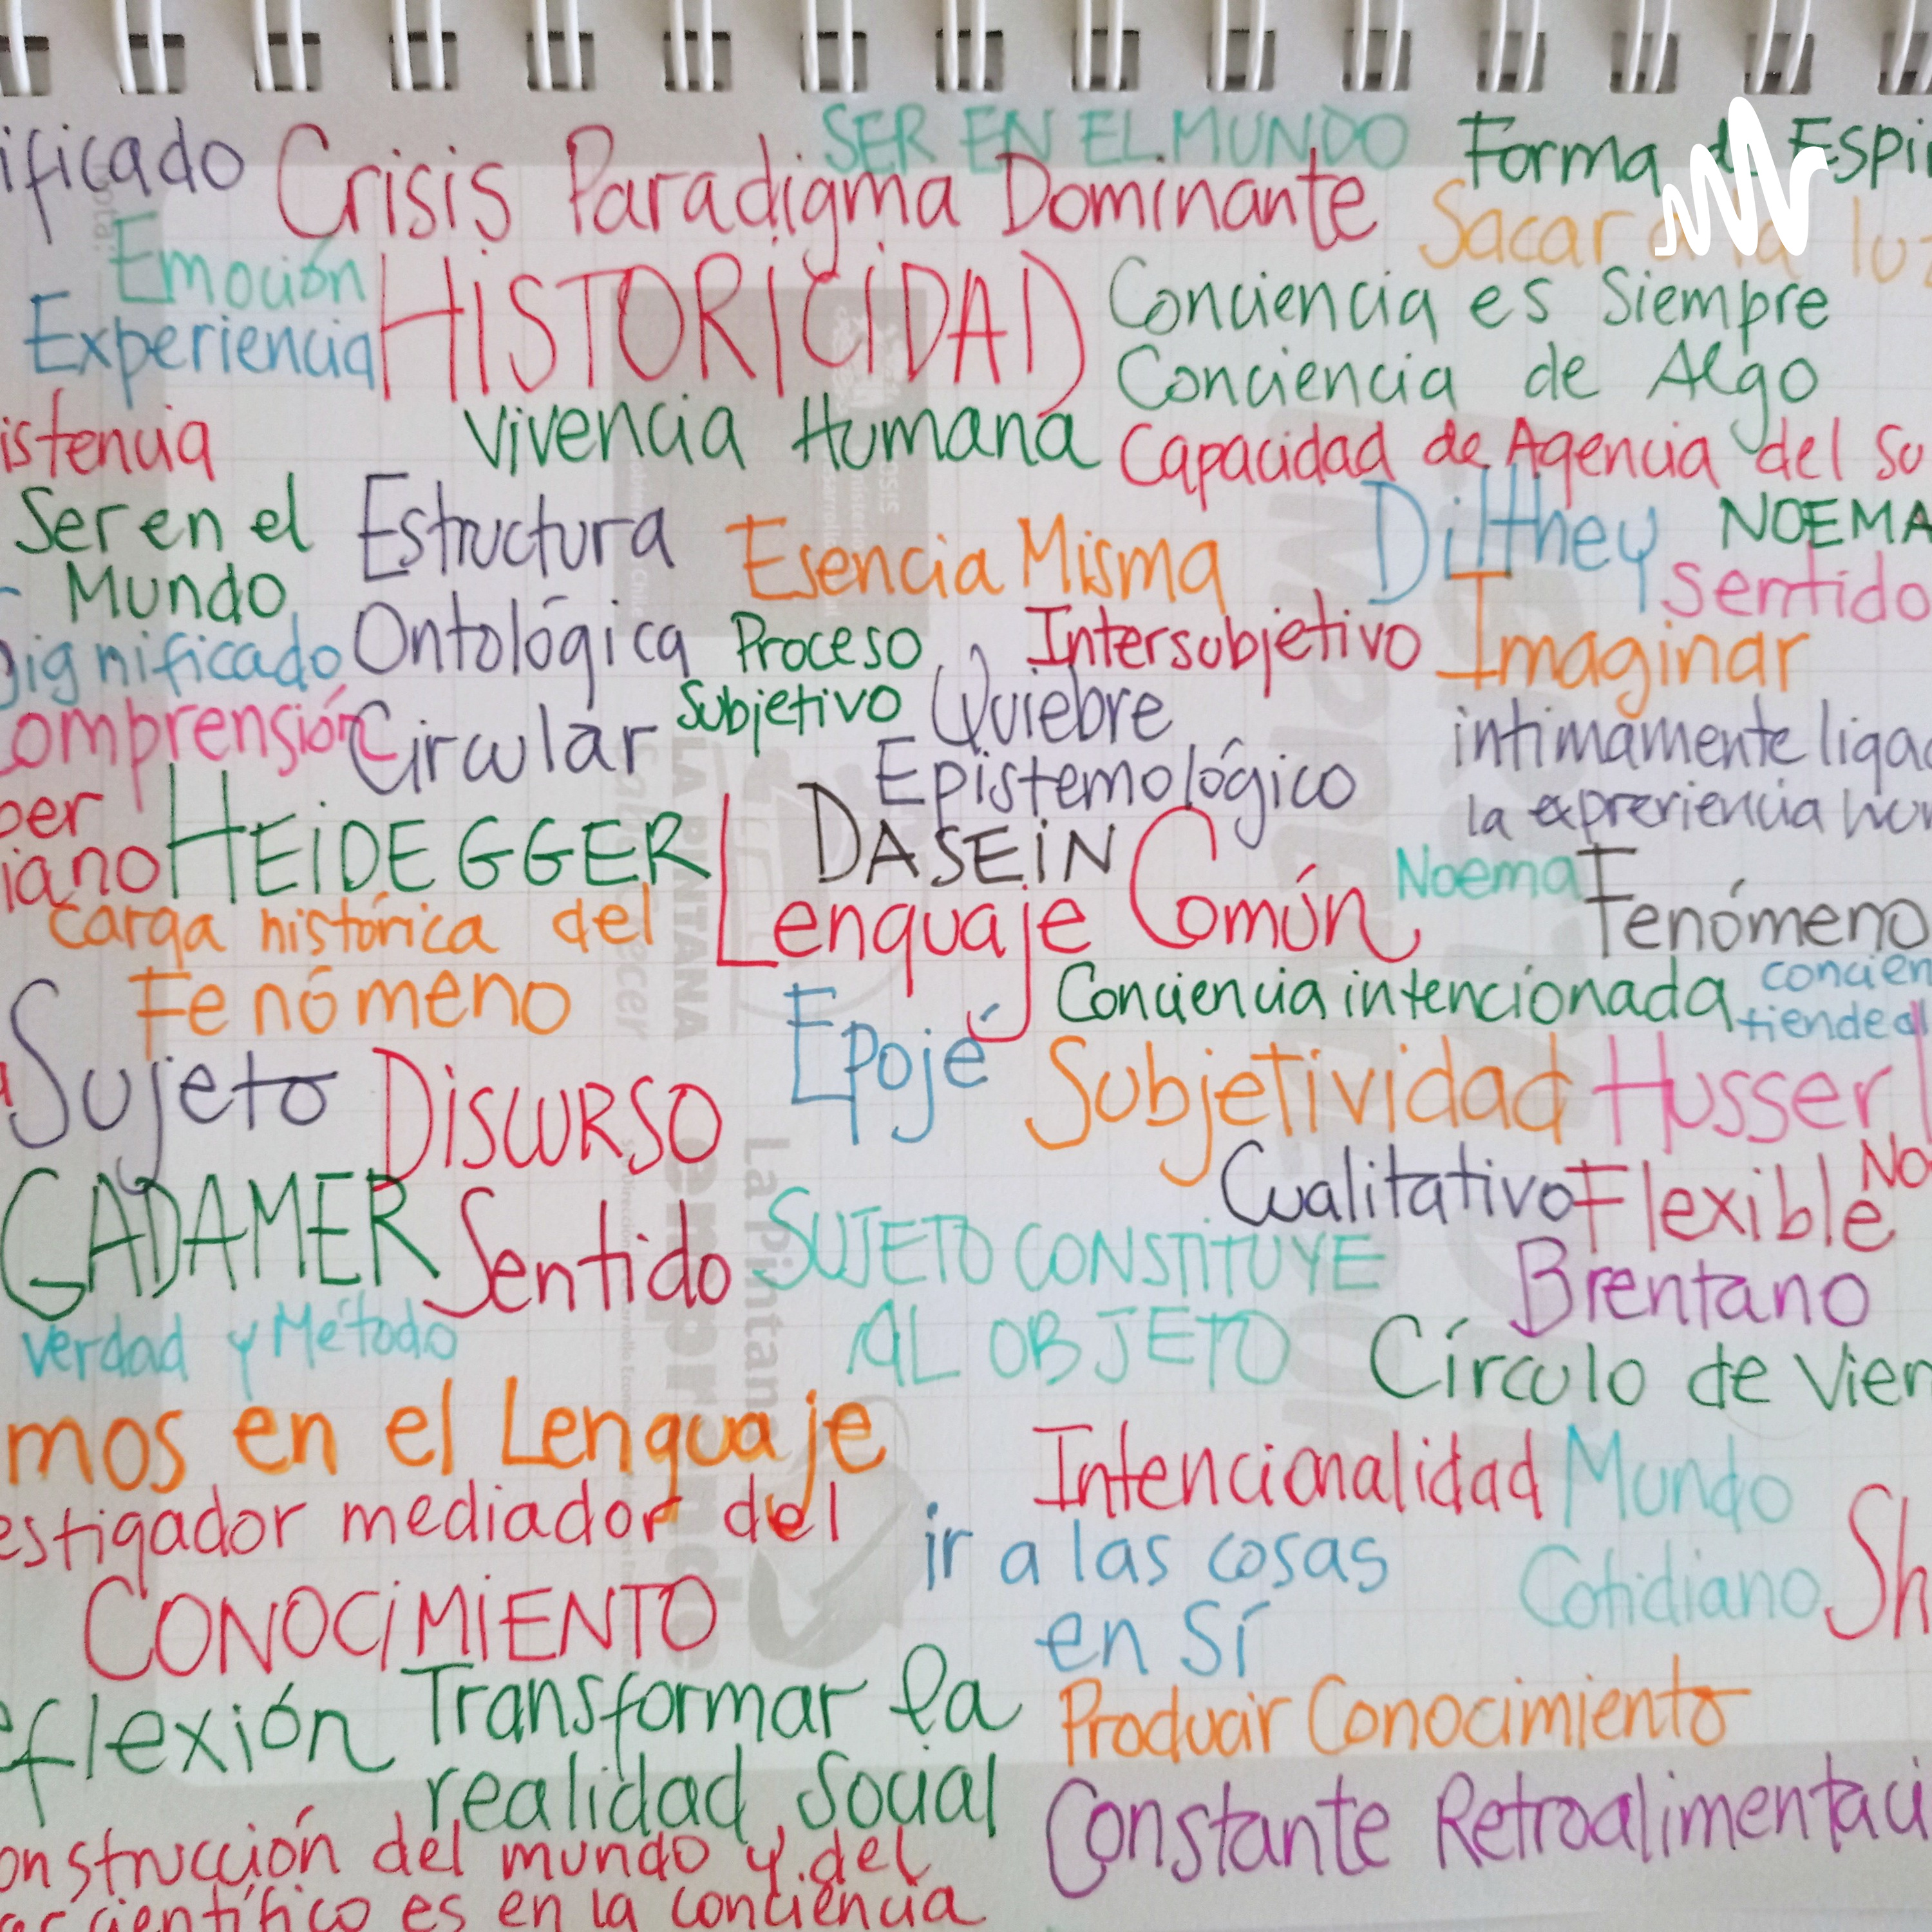 ificado Crisis Paradigma Dominante
SER EN EL MUNDO
Forma de Espi
Sacar a la luz
Emoción
Experiencia
HISTORICIDAD
Conciencia es Siempre
Conciencia de Algo
istencia
Vivencia Humana
Capacidad de Agencia del Su
Ser en el
Mundo
Estructura
Ontológica
Circular
Esencia Misma
Dilthey
NOEMA
Sentido
Significado
Proceso
Subjetivo
Intersubjetivo
Imaginar
omprensión
Quiebre
Epistemológico
intimamente ligad
la expreriencia hum
per
iano
HEIDEGGER
DASEIN
Lenguaje Común
Noema
Fenómeno
carga histórica del
Fenómeno
Conciencia intencionada
concien
tiende a
Sujeto
DISCURSO
Epojé
Subjetividad
Husserl
GADAMER
Sentido
Cualitativo
Flexible
No
SUJETO CONSTITUYE
AL OBJETO
Brentano
Verdad y Método
Círculo de Vien
mos en el Lenguaje
Intencionalidad
Mundo
Cotidiano
estigador mediador del
CONOCIMIENTO
ir a las cosas
en Sí
Sh
eflexión
Transformar la
realidad Social
Producir Conocimiento
Constante Retroalimentaci
onstrucción del mundo y del
científico es en la conciencia